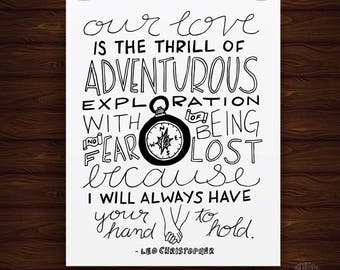 our love
IS THE THRILL OF
ADVENTUROUS
EXPLORATION
WITH OF BEING
NO FEAR LOST
because
I WILL ALWAYS HAVE
your hand to hold.
- LEO CHRISTOPHER